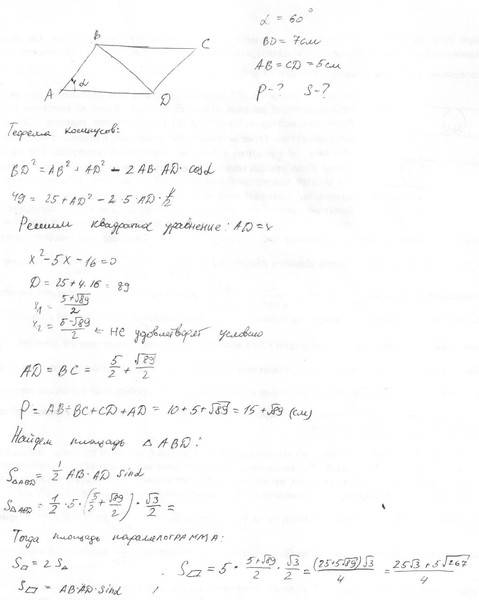 α = 60°
BD = 7см
AB = CD = 5см
P - ? S - ?
B
C
A
α
D
Теорема косинусов:
BD² = AB² + AD² - 2 AB · AD · cosα
49 = 25 + AD² - 2 · 5 · AD · 1/2
Решим квадратное уравнение: AD = x
x² - 5x - 16 = 0
D = 25 + 4 · 16 = 89
x₁ = (5+√89)/2
x₂ = (5-√89)/2 ← не удовлетворяет условию
AD = BC = 5/2 + √89/2
P = AB + BC + CD + AD = 10 + 5 + √89 = 15 + √89 (см)
Найдем площадь △ ABD:
S△ABD = 1/2 AB · AD sinα
S△ABD = 1/2 · 5 · (5/2 + √89/2) · √3/2 =
Тогда площадь параллелограмма:
S▱ = 2S△
S▱ = AB·AD·sinα
S▱ = 5 · (5+√89)/2 · √3/2 = (25+5√89)√3/4 = (25√3 + 5√267)/4